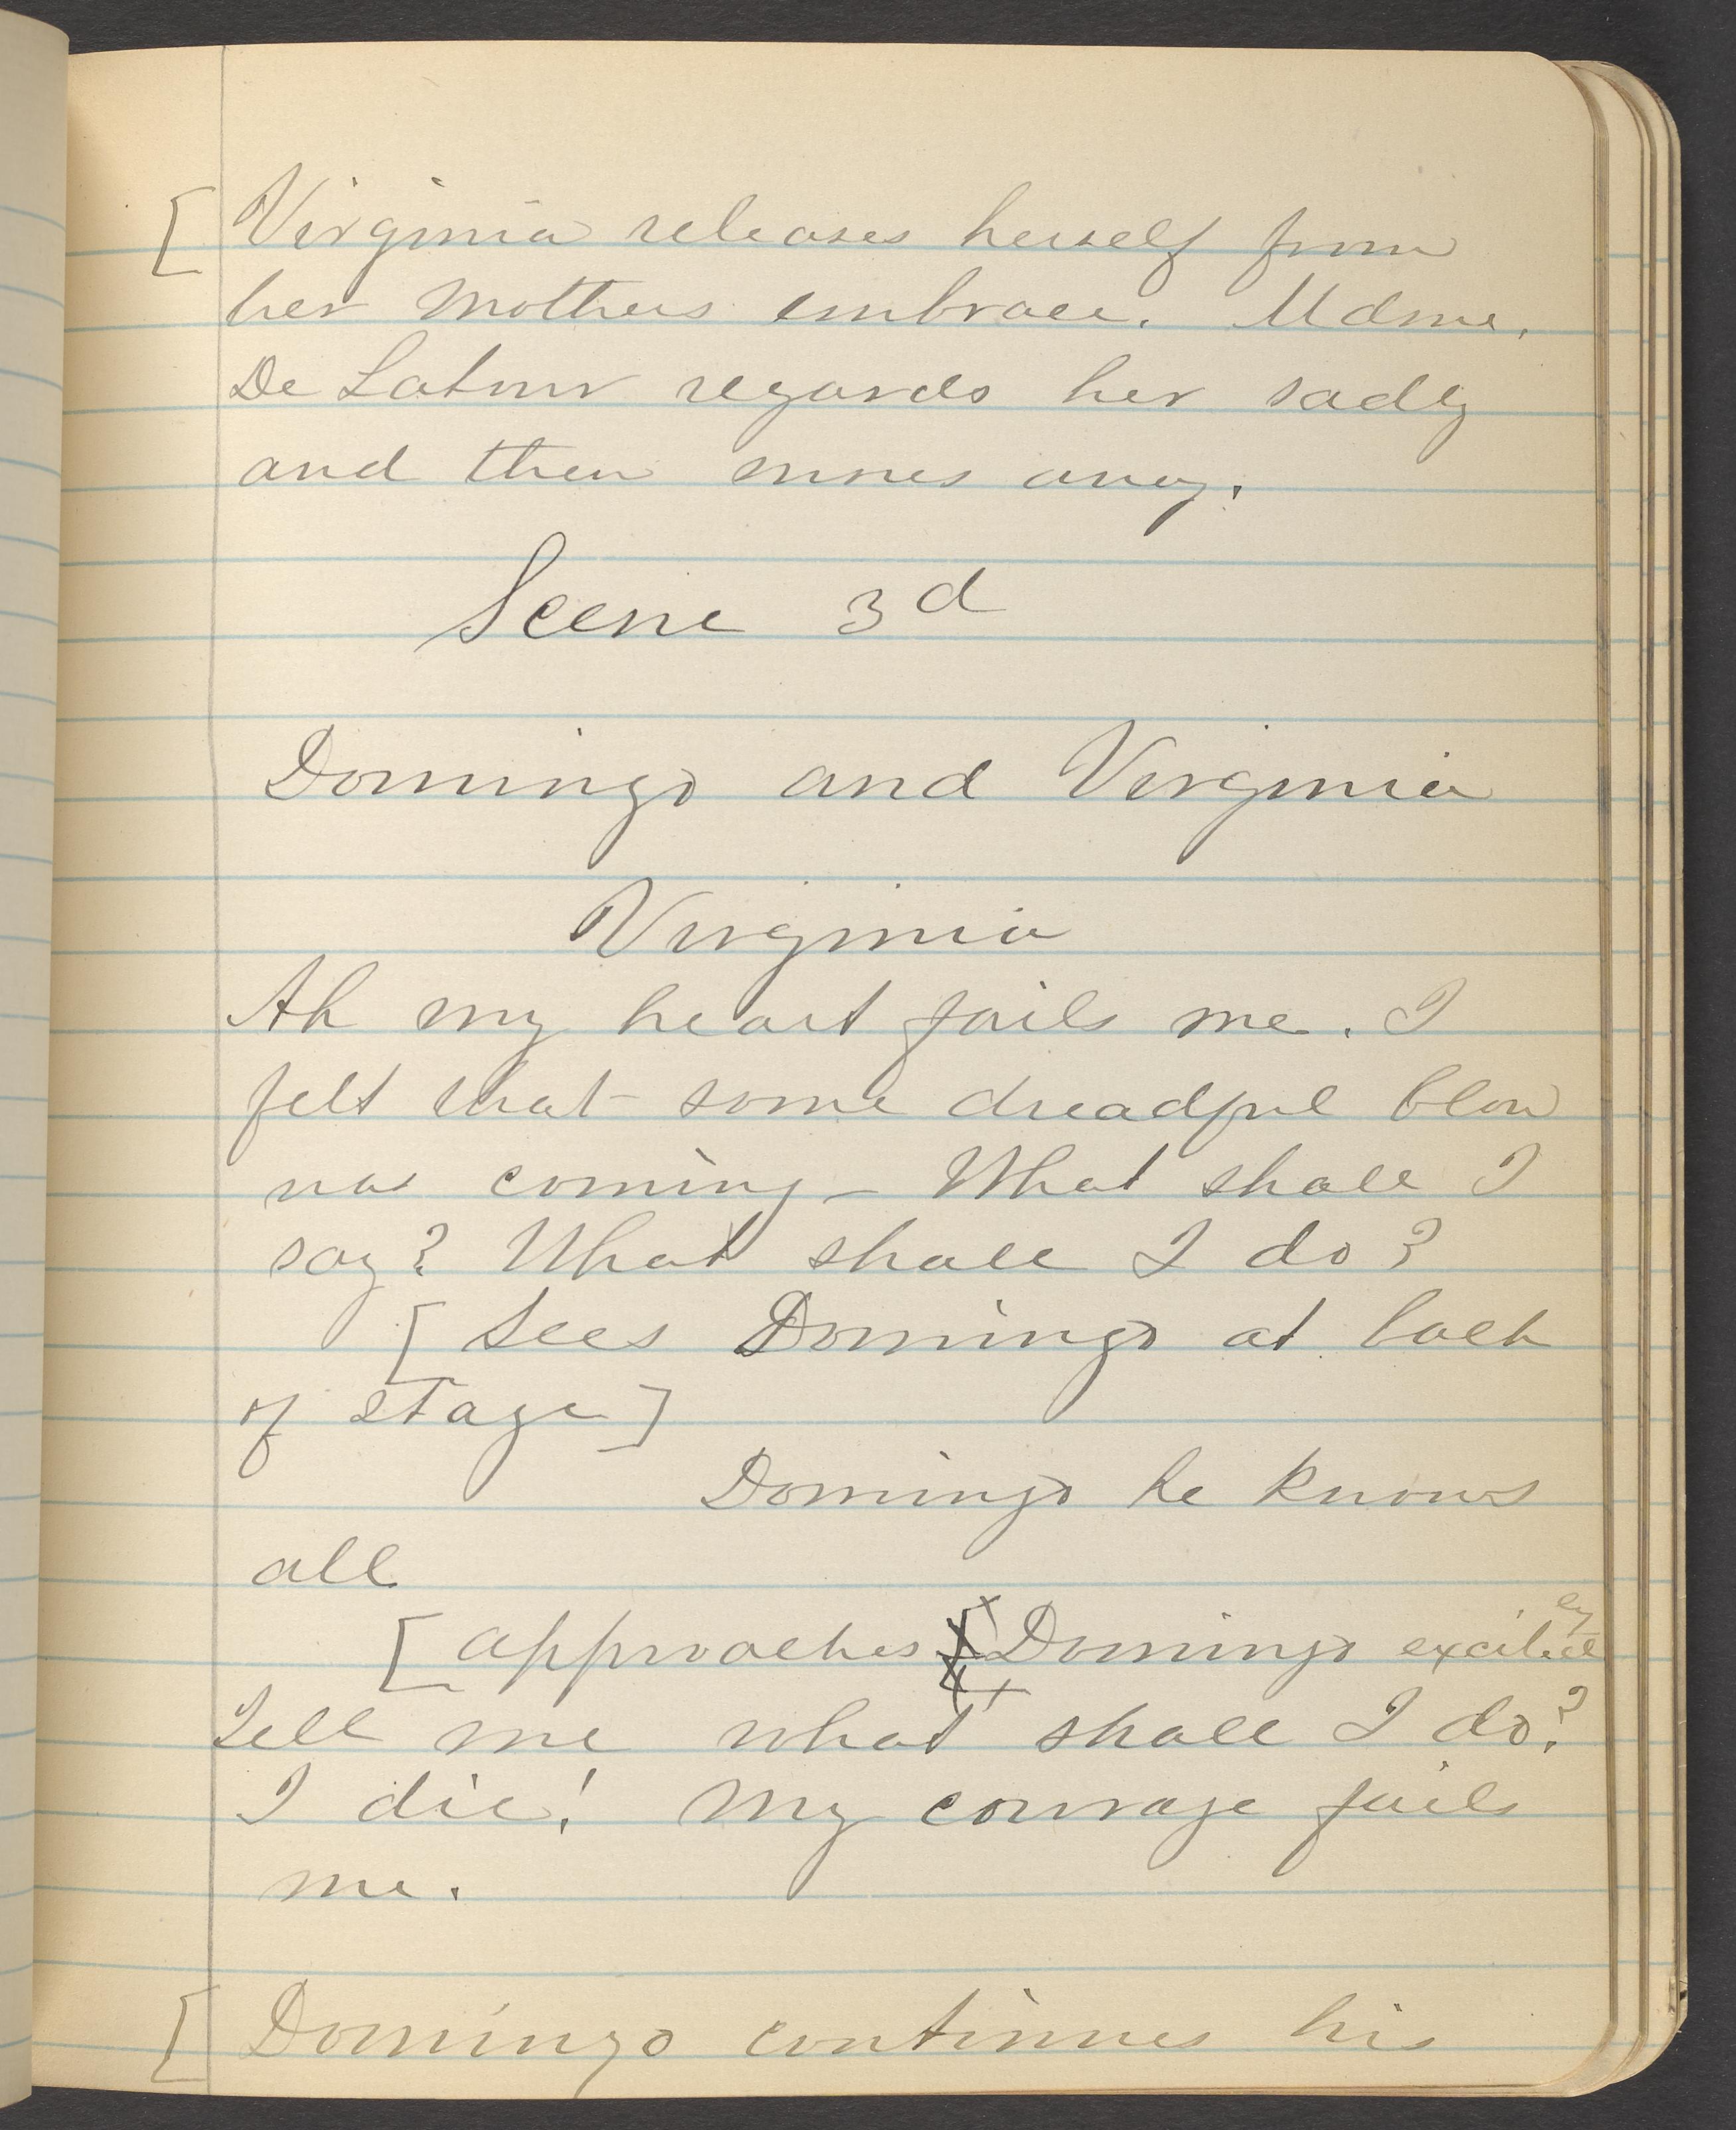 [Virginia releases herself from
her mothers embrace. Mdme.
De Latour regards her sadly
and then moves away.
Scene 3d
Domingo and Virginia
Virginia
Ah my heart fails me. I
felt that some dreadful blow
was coming - What shall I
say? What shall I do?
[Sees Domingo at back
of stage]
Domingo he knows
all
[approaches Domingo excitedly
Tell me what shall I do?
I die! My courage fails
me.
[Domingo continues his